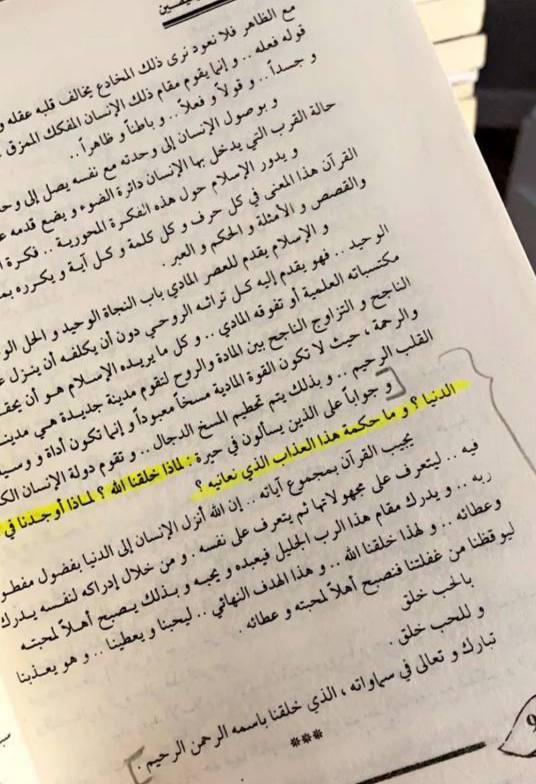 مع الظاهر فلا نعود نرى ذلك المخادع يخالف قلبه عقله و
قوله فعله .. و إنما يقوم مقام ذلك الإنسان المفكك الممزق
و جسداً .. و قولاً و فعلاً .. و باطناً و ظاهراً ..
و بوصول الإنسان إلى وحدته مع نفسه يصل إلى
حالة القرب التي يدخل بها الإنسان دائرة الضوء و يضع قدمه
و يدور الإسلام حول هذه الفكرة المحورية .. فكرة
القرآن هذا المعنى في كل حرف و كل كلمة و كل آية و يكرره
والقصص و الأمثلة و الحكم و العبر .
و الإسلام يقدم للعصر المادي باب النجاة الوحيد و الحل
الوحيد .. فهو يقدم إليه كل تراثه الروحي دون أن يكلفه أن ينزل
مكتسباته العلمية أو تفوقه المادي .. و كل ما يريده الإسلام هو أن
الناجح و التزاوج الناجح بين المادة والروح لتقوم مدنية جديدة هي
والرحمة ، حيث لا تكون القوة المادية مسخاً معبوداً و إنما تكون أداة و
القلب الرحيم .. و بذلك يتم تحطيم المسخ الدجال .. و تقوم دولة الإنسان
و جواباً على الذين يسألون في حيرة : لماذا خلقنا الله ؟ لماذا أوجدنا في
الدنيا ؟ و ما حكمة هذا العذاب الذي نعانيه ؟
يجيب القرآن بمجموع آياته .. إن الله أنزل الإنسان إلى الدنيا بفضول
فيه .. ليتعرف على مجهولاتها ثم يتعرف على نفسه . و من خلال إدراكه لنفسه يدرك
ربه .. و يدرك مقام هذا الرب الجليل فيعبده و يحبه و بذلك يصبح أهلاً لمحبته
وعطائه .. و لهذا خلقنا الله .. و هذا الهدف النهائي .. ليحبنا و يعطينا .. و هو يعذبنا
ليوقظنا من غفلتنا فنصبح أهلاً لمحبته و عطائه .
بالحب خلق
و للحب خلق .
تبارك و تعالى في سماواته ، الذي خلقنا باسمه الرحمن الرحيم .
***